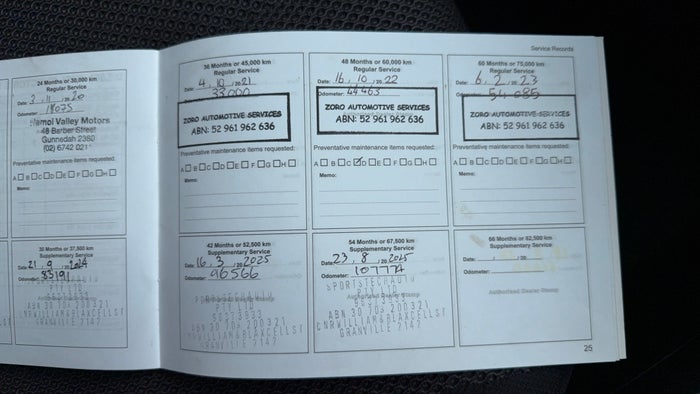 Service Records
24 Months or 30,000 km
Regular Service
Date: 3 . 11 . 20 20
Odometer:
Namoi Valley Motors
48 Barber Street
Gunnedah 2380
(02) 6742 021
Preventative maintenance items requested:
A B C D E F G H
Memo:
36 Months or 45,000 km
Regular Service
Date: 4 . 10 . 20 21
33,000
ZORO AUTOMOTIVE SERVICES
ABN: 52 961 962 636
Preventative maintenance items requested:
A B C D E F G H
Memo:
48 Months or 60,000 km
Regular Service
Date: 16 . 10 . 20 22
Odometer: 44463
ZORO AUTOMOTIVE SERVICES
ABN: 52 961 962 636
Preventative maintenance items requested:
A B C D E F G H
Memo:
60 Months or 75,000 km
Regular Service
Date: 6 . 2 . 20 23
54,085
ZORO AUTOMOTIVE SERVICES
ABN: 52 961 962 636
Preventative maintenance items requested:
A B C D E F G H
Memo:
30 Months or 37,500 km
Supplementary Service
Date: 21 . 9 . 2024
Odometer: 83191
PTY LTD
ABN 30 703 200321
CNRWILLIAM&BLAXCELLST
GRANVILLE 2142
42 Months or 52,500 km
Supplementary Service
Date: 16 . 3 . 2025
Odometer: 96566
PTY LTD
ABN 30 703 200321
CNRWILLIAM&BLAXCELLST
GRANVILLE 2142
54 Months or 67,500 km
Supplementary Service
Date: 23 . 8 . 20 2025
Odometer: 107774
SPORTSTECHAUTO
Authorised Dealer Stamp
PTY LTD
ABN 30 703 200321
CNRWILLIAM&BLAXCELLST
GRANVILLE 2142
66 Months or 82,500 km
Supplementary Service
Date: . . 20
Odometer:
Authorised Dealer Stamp
25